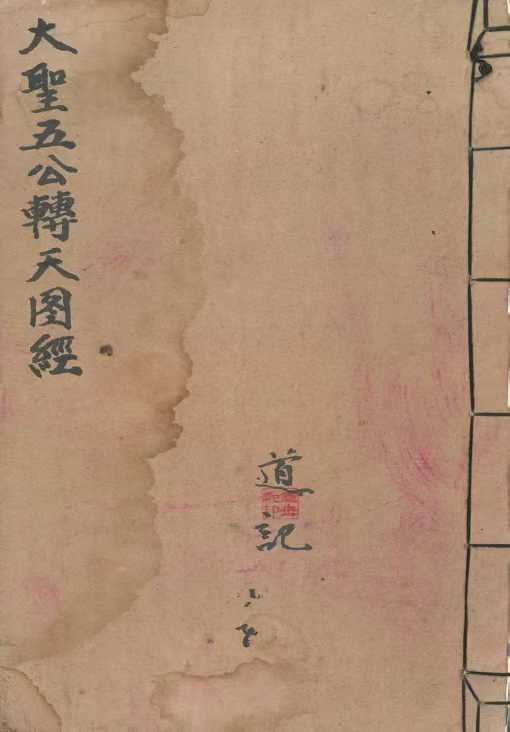 大聖五公轉天图經
道記